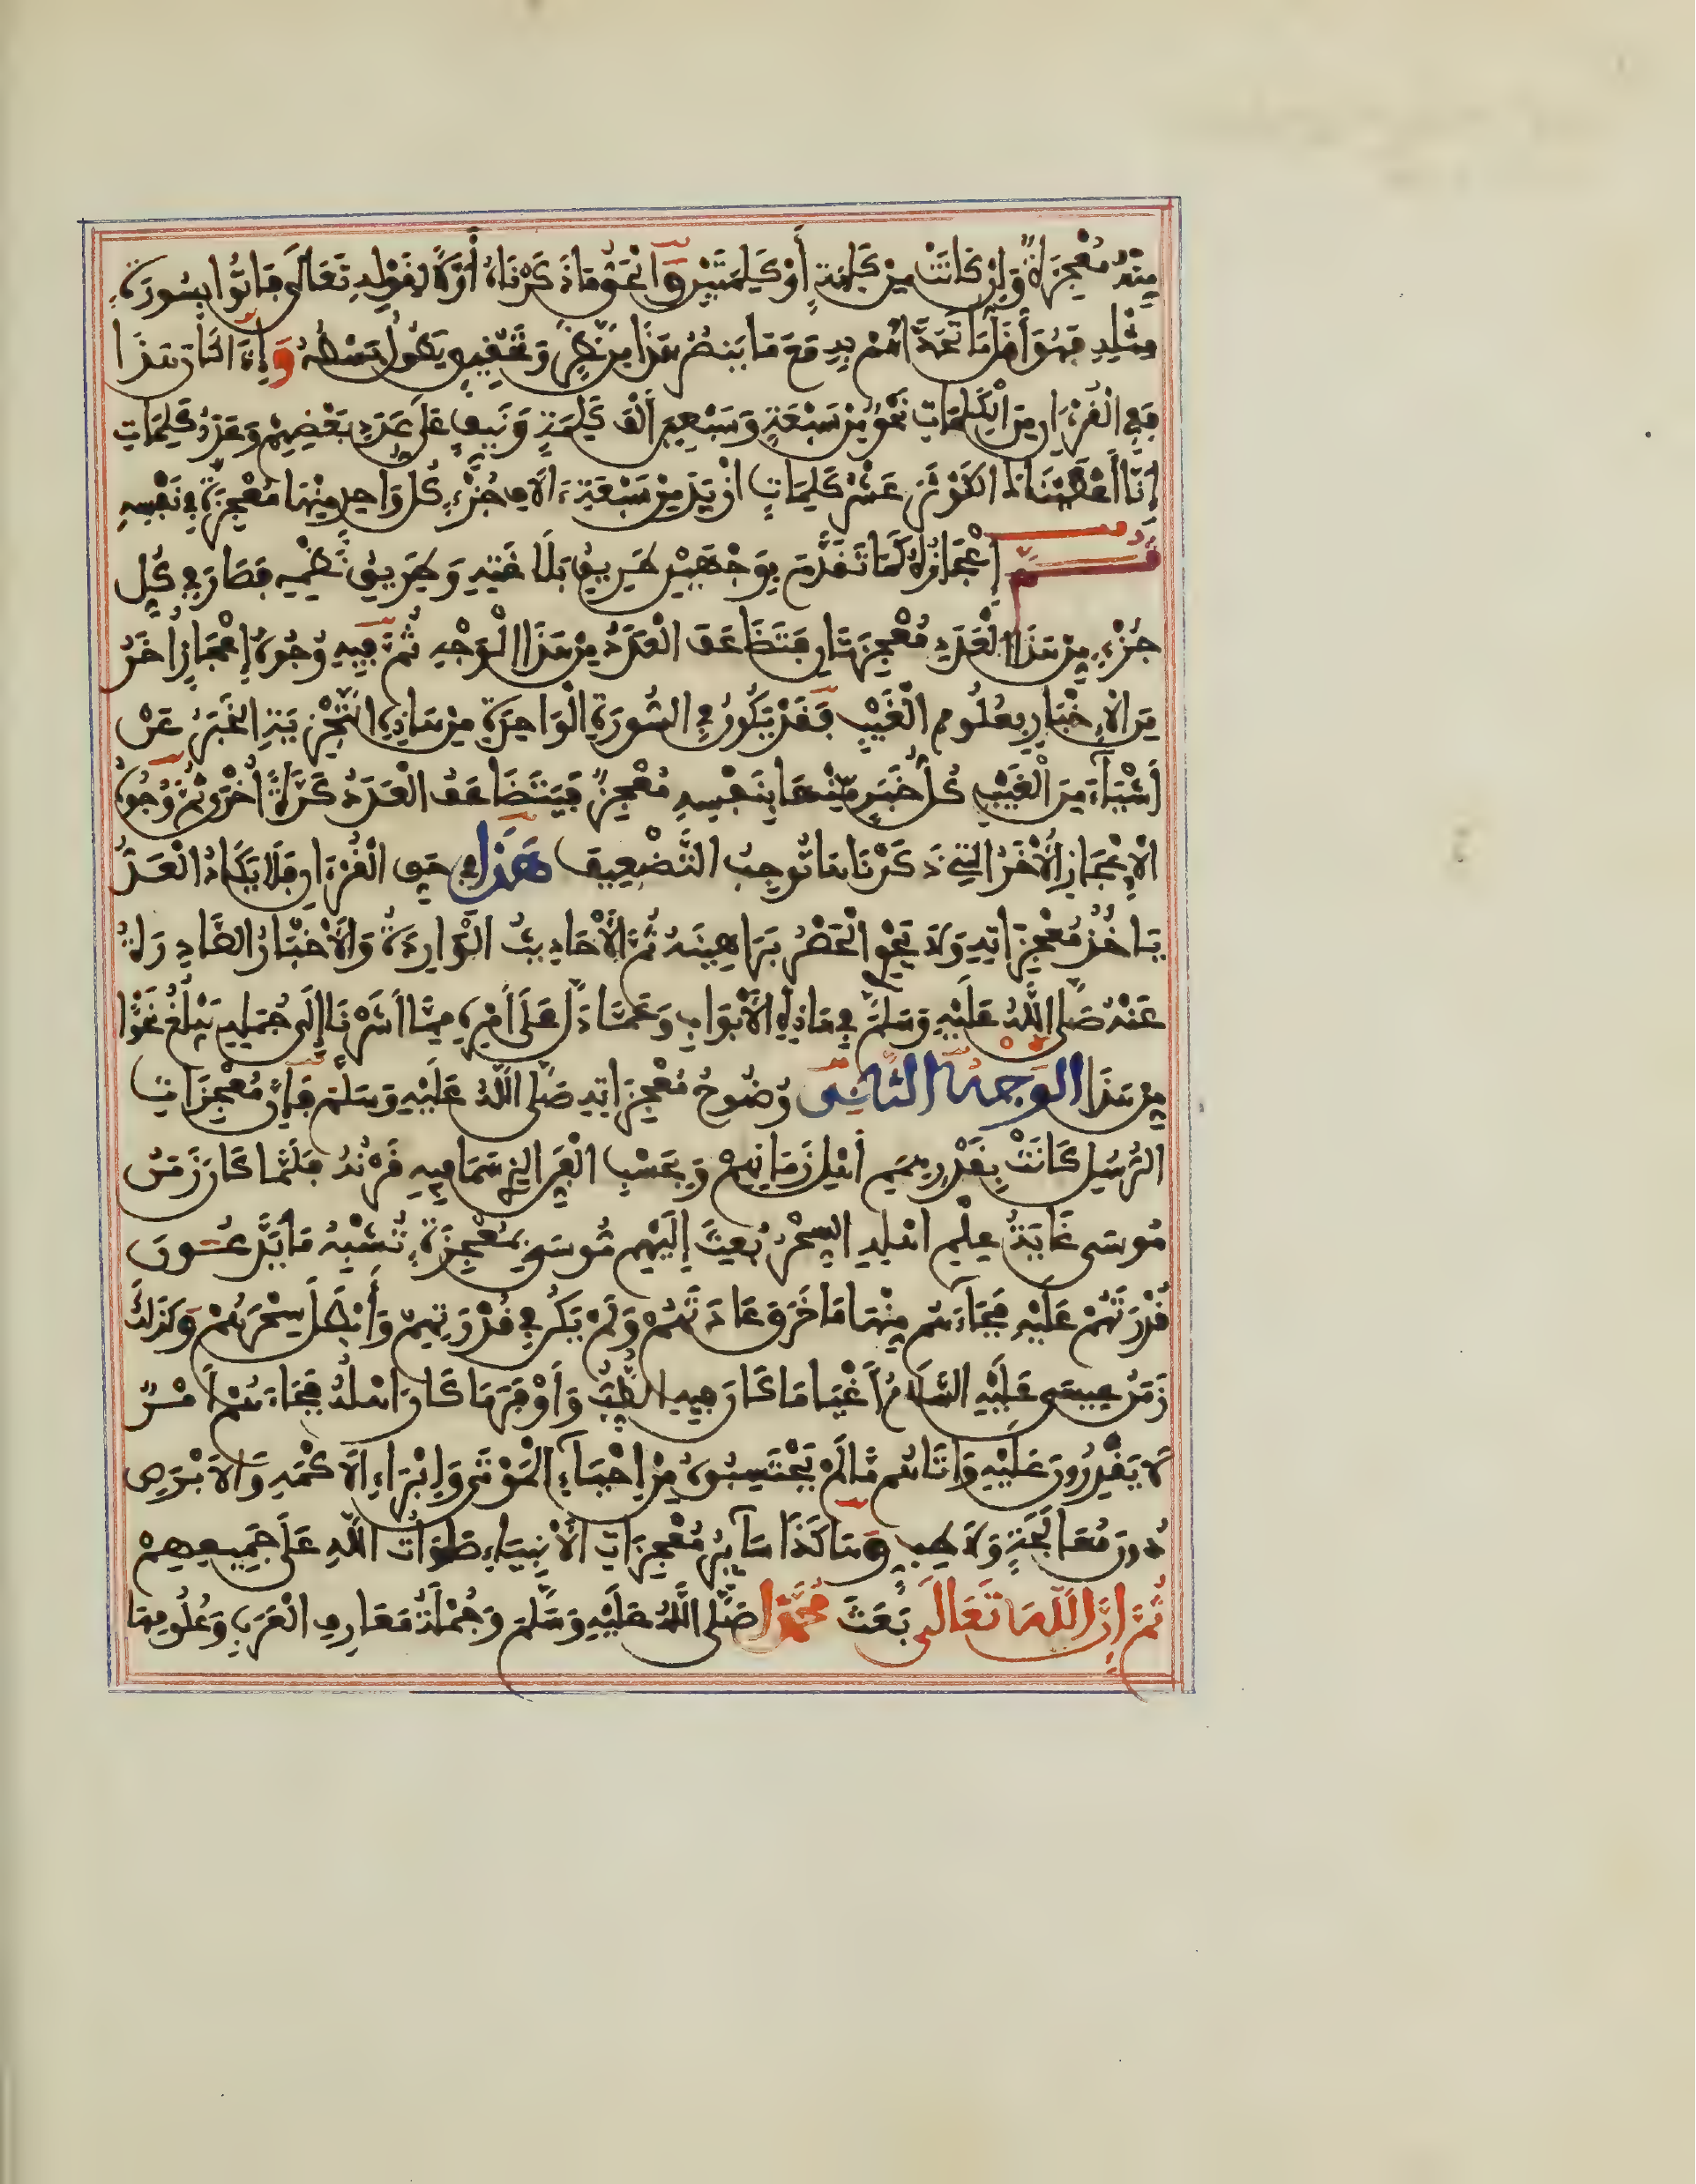 مِنْهُ مُعْجِزَةٌ وَإِنْ كَانَتْ مِنْ كَلِمَةٍ أَوْ كَلِمَتَيْنِ وَالْحَقُّ مَا ذَكَرْنَاهُ أَوَّلًا لِقَوْلِهِ تَعَالَى فَاتُوا بِسُورَةٍ
مِثْلِهِ فَهُوَ أَقَلُّ مَا تَحَدَّاهُمْ بِهِ مَعَ مَا يَنْصُرُ هَذَا مِنْ نَظَرٍ وَتَحْقِيقٍ يَطُولُ بَسْطُهُ وَإِذَا كَانَ هَذَا
فَفِي الْقُرْءَانِ مِنَ الْكَلِمَاتِ نَحْوٌ مِنْ سَبْعَةٍ وَسَبْعِينَ أَلْفَ كَلِمَةٍ وَنَيِّفٍ عَلَى عَدَدِ بَعْضِهِمْ وَعَدَدُ كَلِمَاتِ
إِنَّا أَعْطَيْنَاكَ الْكَوْثَرَ عَشْرُ كَلِمَاتٍ أَزْيَدَ مِنْ سَبْعَةِ ءَالَافِ جُزْءٍ كُلُّ وَاحِدٍ مِنْهَا مُعْجِزَةٌ فِي نَفْسِهِ
ثُمَّ إِعْجَازُهُ كَمَا تَقَدَّمَ بِوَجْهَيْنِ طَرِيقُ بَلَاغَتِهِ وَطَرِيقُ نَظْمِهِ فَصَارَ فِي كُلِّ
جُزْءٍ مِنْ هَذَا الْعَدَدِ مُعْجِزَتَانِ فَتَضَاعَفَ الْعَدَدُ مِنْ هَذَا الْوَجْهِ ثُمَّ فِيهِ وُجُوهُ إِعْجَازٍ أُخَرُ
مِنَ الْإِخْبَارِ بِعُلُومِ الْغَيْبِ فَقَدْ يَكُونُ فِي السُّورَةِ الْوَاحِدَةِ مِنْ هَاذِهِ التَّجْزِيَةِ الْخَبَرُ عَنْ
أَشْيَاءَ مِنَ الْغَيْبِ كُلُّ خَبَرٍ مِّنْهَا بِنَفْسِهِ مُعْجِزٌ فَيَتَضَاعَفُ الْعَدَدُ كَرَّةً أُخْرَى ثُمَّ وُجُوهُ
الْإِعْجَازِ الْأُخَرُ الَّتِي ذَكَرْنَاهَا تُوجِبُ التَّضْعِيفَ هَذَا فِي حَقِّ الْقُرْءَانِ فَلَا يَكَادُ الْعَدُّ
يَاخُذُ مُعْجِزَاتِهِ وَلَا يَحْوِي الْحَصْرُ بَرَاهِينَهُ ثُمَّ الْأَحَادِيثُ الْوَارِدَةُ وَالْأَخْبَارُ الصَّادِرَةُ
عَنْهُ صَلَّى اللَّهُ عَلَيْهِ وَسَلَّمَ فِي هَاذِهِ الْأَبْوَابِ وَعَمَّا دَلَّ عَلَى أَمْرِهِ مِمَّا أَشَرْنَا إِلَى جُمَلِهِ يَبْلُغُ نَحْوًا
مِنْ هَذَا الْوَجْهُ الثَّانِي وُضُوحُ مُعْجِزَاتِهِ صَلَّى اللَّهُ عَلَيْهِ وَسَلَّمَ فَإِنَّ مُعْجِزَاتِ
الرُّسُلِ كَانَتْ بِقَدْرِ هِمَمِ أَهْلِ زَمَانِهِمْ وَبِحَسْبِ الْفَنِّ الَّذِي سَمَا فِيهِ قَرْنُهُ فَلَمَّا كَانَ زَمَنُ
مُوسَى غَايَةُ عِلْمِ أَهْلِهِ السِّحْرُ بُعِثَ إِلَيْهِمْ مُوسَى بِمُعْجِزَةٍ تُشْبِهُ مَا يَدَّعُونَ
قُدْرَتَهُمْ عَلَيْهِ فَجَاءَهُمْ مِنْهَا مَا خَرَقَ عَادَتَهُمْ وَلَمْ يَكُنْ فِي قُدْرَتِهِمْ وَأَبْطَلَ سِحْرَهُمْ وَكَذَلِكَ
زَمَنُ عِيسَى عَلَيْهِ السَّلَامُ أَغْيَا مَا كَانَ فِيهِ الطِّبُّ وَأَوْفَرَ مَا كَانَ أَهْلُهُ فَجَاءَهُمْ أَمْرٌ
لَا يَقْدِرُونَ عَلَيْهِ وَأَتَاهُمْ مَّا لَمْ يَحْتَسِبُوهُ مِنْ إِحْيَاءِ الْمَوْتَى وَإِبْرَاءِ الْأَكْمَهِ وَالْأَبْرَصِ
دُونَ مُعَالَجَةٍ وَلَا طِبٍّ وَهَاكَذَا سَائِرُ مُعْجِزَاتِ الْأَنْبِيَاءِ صَلَوَاتُ اللَّهِ عَلَى جَمِيعِهِمْ
ثُمَّ إِنَّ اللَّهَ تَعَالَى بَعَثَ مُحَمَّدًا صَلَّى اللَّهُ عَلَيْهِ وَسَلَّمَ وَجُمْلَةُ مَعَارِفِ الْعَرَبِ وَعُلُومِهَا